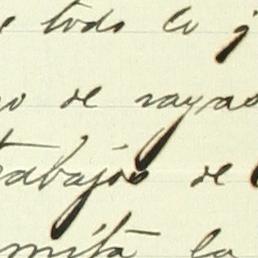 todo lo
de rayas
trabajos de
mita la